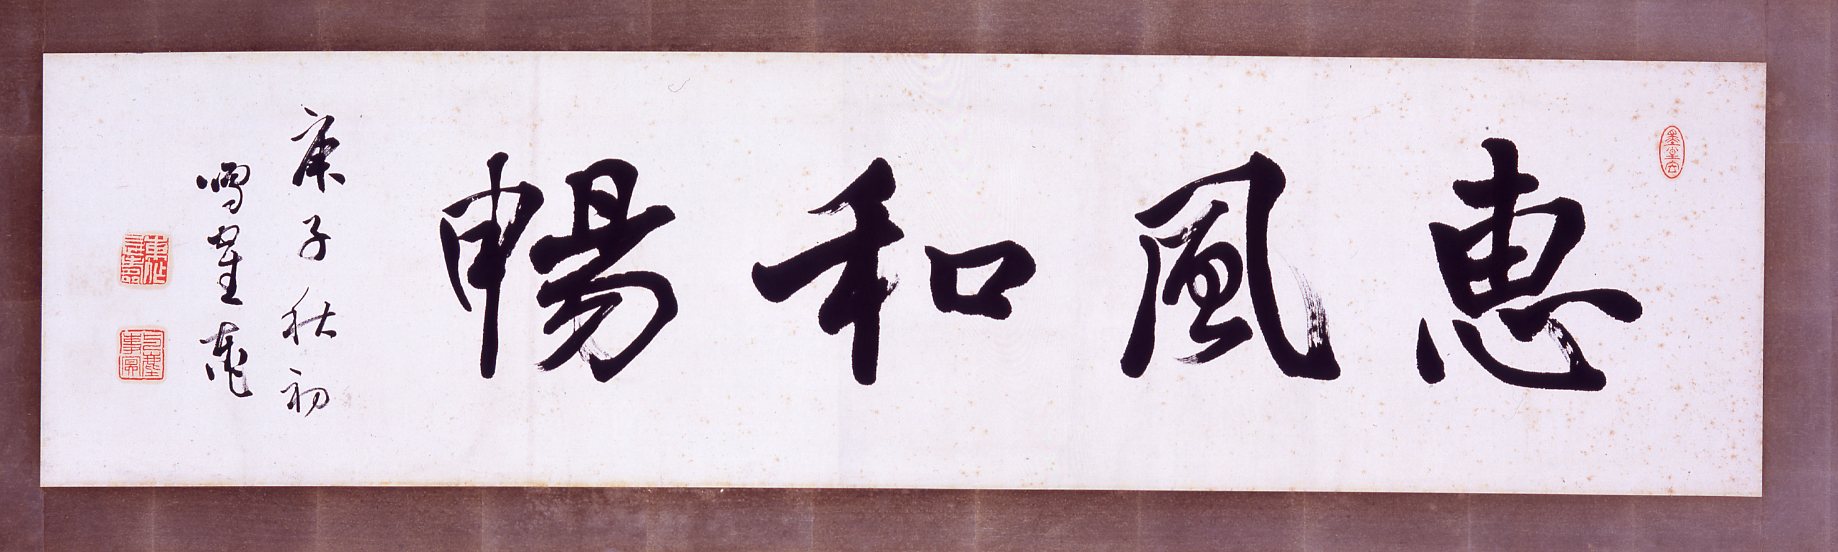 惠風和暢
庚子秋初
鳴寉